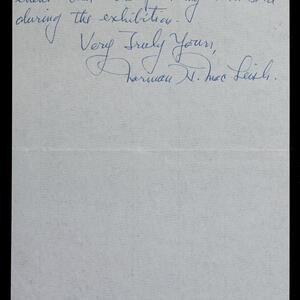 during the exhibition.
Very Truly Yours,
Norman H. Mac Leish.